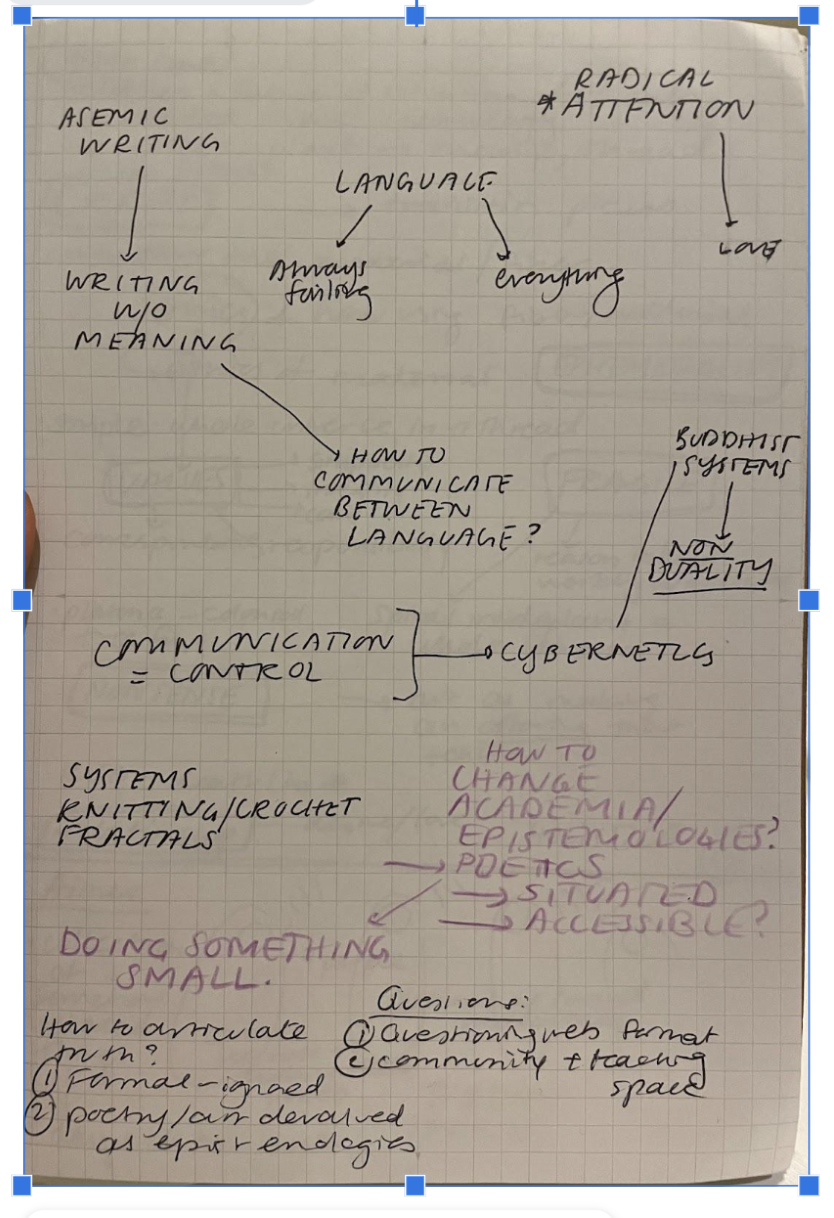 RADICAL
*ATTENTION
ASEMIC
WRITING
LANGUAGE
LOVE
Always
failing
everything
WRITING
W/O
MEANING
BUDDHIST
SYSTEMS
HOW TO
COMMUNICATE
BETWEEN
LANGUAGE?
NON
DUALITY
COMMUNICATION
= CONTROL
CYBERNETICS
SYSTEMS
KNITTING/CROCHET
FRACTALS
HOW TO
CHANGE
ACADEMIA/
EPISTEMOLOGIES?
POETICS
SITUATED
ACCESSIBLE?
DOING SOMETHING
SMALL.
How to articulate
truth?
① Formal - ignored
② poetry/art devalued
as
Questions:
① Questioning web format
② community + teaching
space